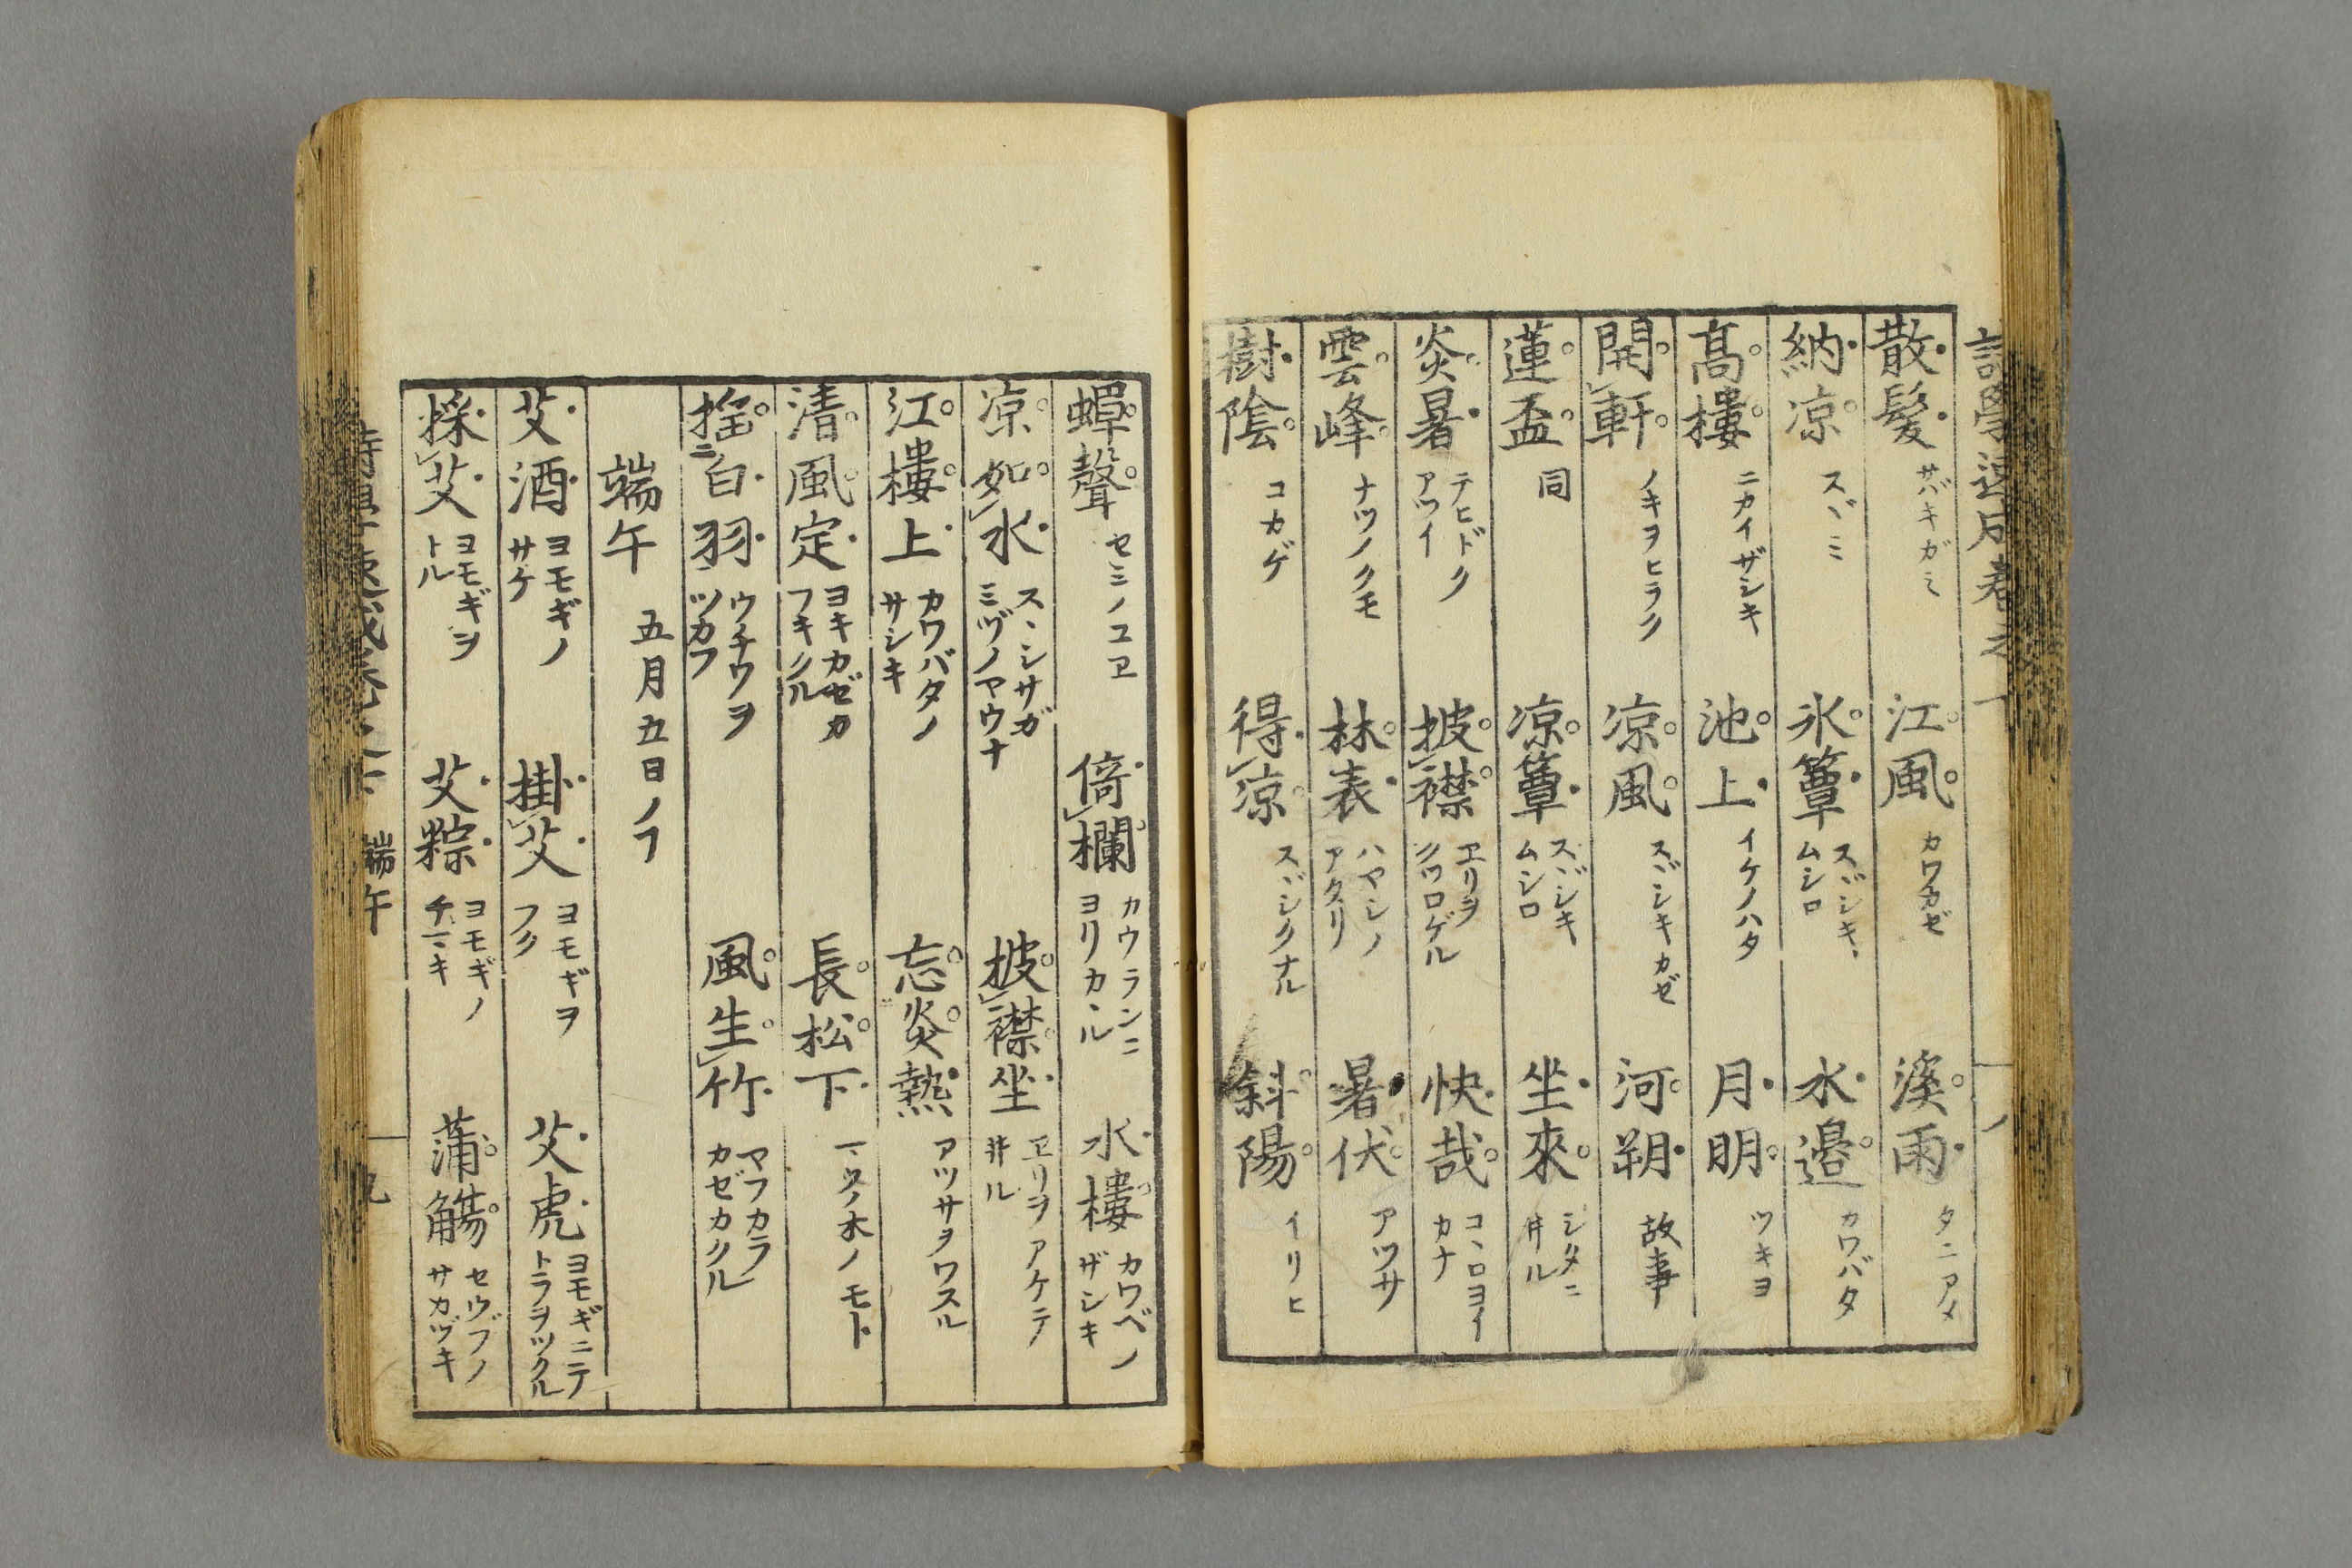 散髮 サバキガミ 江風 カワカゼ 溪雨 タニアメ
納凉 スヾミ 氷簟 スヾシキ ムシロ 水邉 カワバタ
髙樓 ニカイザシキ 池上 イケノハタ 月明 ツキヨ
開軒 ノキヲヒラク 凉風 スヾシキカゼ 河朔 故事
蓮盃 同 凉簟 スヾシキ ムシロ 坐來 シタニ 井ル
炎暑 テヒドク アツイ 披襟 ヱリヲ クツロゲル 快哉 コヽロヨイ カナ
雲峰 ナツノクモ 林表 ハヤシノ アタリ 暑伏 アツサ
樹陰 コカゲ 得凉 スヾシクナル 斜陽 イリヒ
蟬聲 セミノコヱ 倚欄 カウランニ ヨリカヽル 水樓 カワベノ ザシキ
凉如水 スヽシサガ ミヅノヤウナ 披襟坐 ヱリヲアケテ 井ル
江樓上 カワバタノ サシキ 忘炎熱 アツサヲワスル
清風定 ヨキカゼカ フキクル 長松下 マツノ木ノモト
揺白羽 ウチワヲ ツカフ 風生竹 マフカラ カゼカクル
端午 五月五日ノヿ
艾酒 ヨモギノ サケ 掛艾 ヨモギヲ フク 艾虎 ヨモギニテ トラヲツクル
採艾 ヨモギヲ トル 艾粽 ヨモギノ チマキ 蒲觴 セウブノ サカヅキ
端午